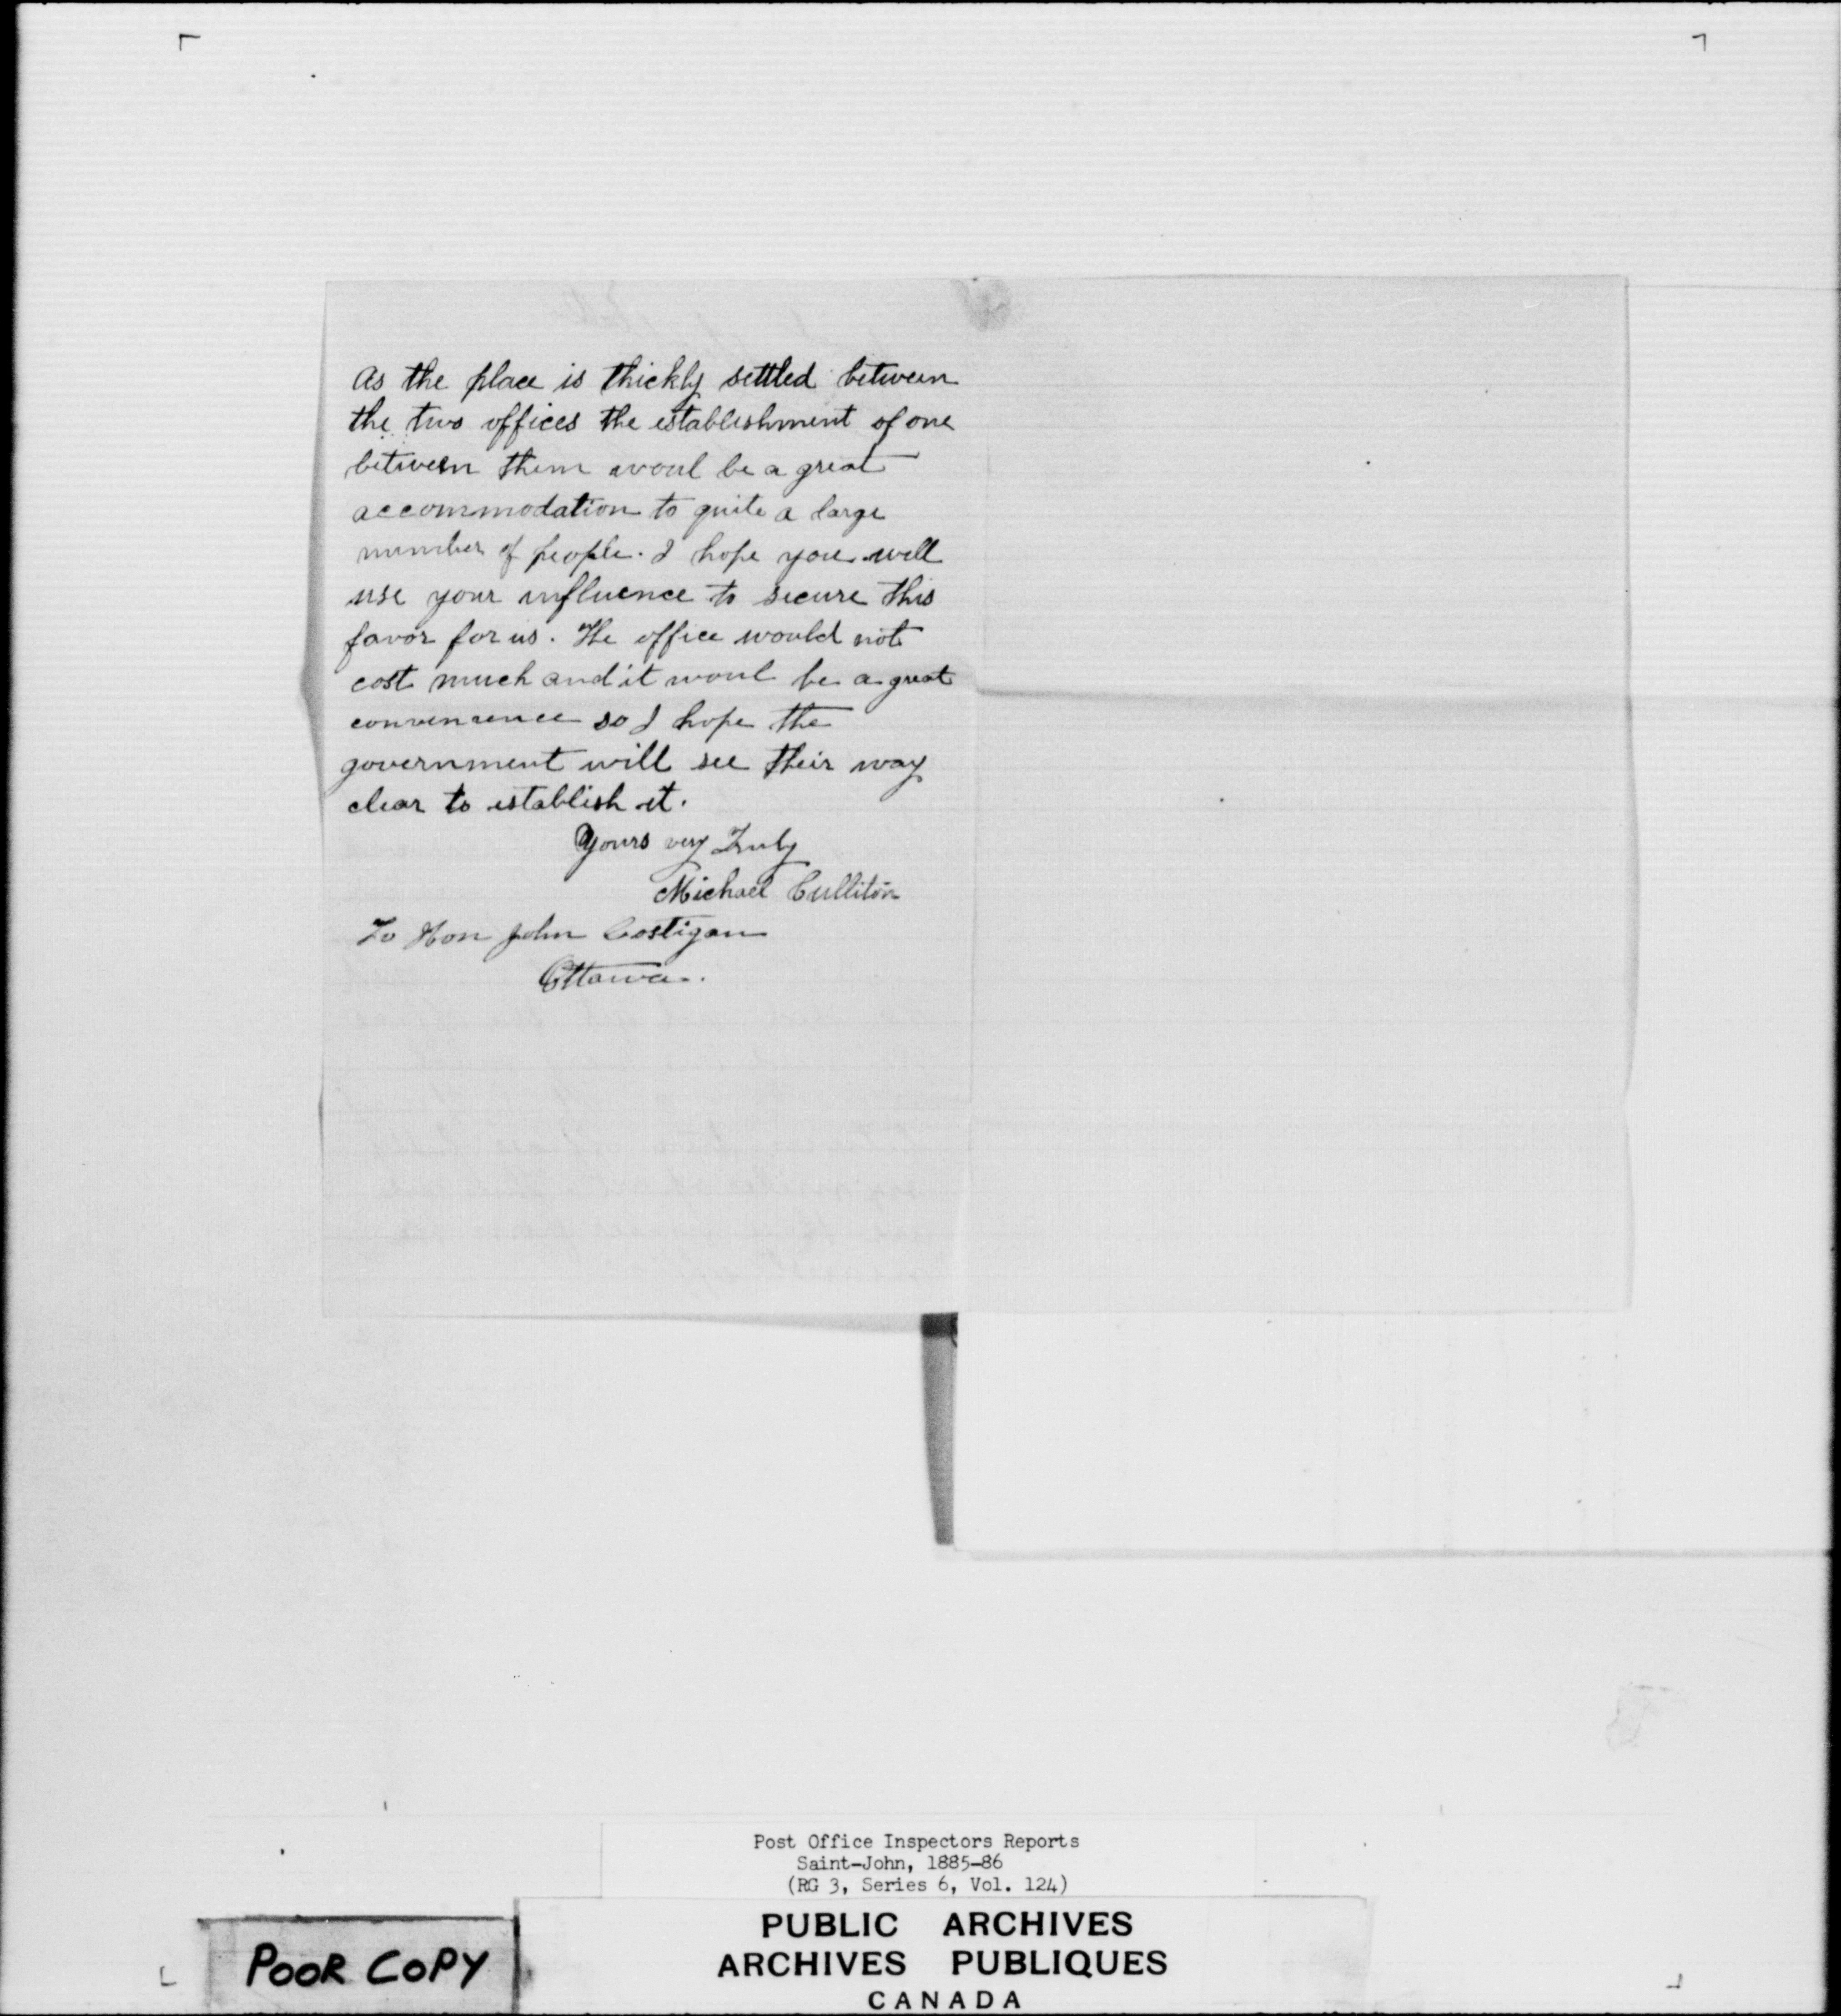 As the place is thickly settled between
the two offices the establishment of one
between them woul be a great
accommodation to quite a large
number of people. I hope you will
use your influence to secure this
favor for us. The office would not
cost much and it woul be a great
convenience so I hope the
government will see their way
clear to establish it.
Yours very Truly
Michael Culliton
To Hon John Costigan
Ottawa.
Post Office Inspectors Reports
Saint-John, 1885-86
(RG 3, Series 6, Vol. 124)
PUBLIC ARCHIVES
ARCHIVES PUBLIQUES
CANADA
POOR COPY